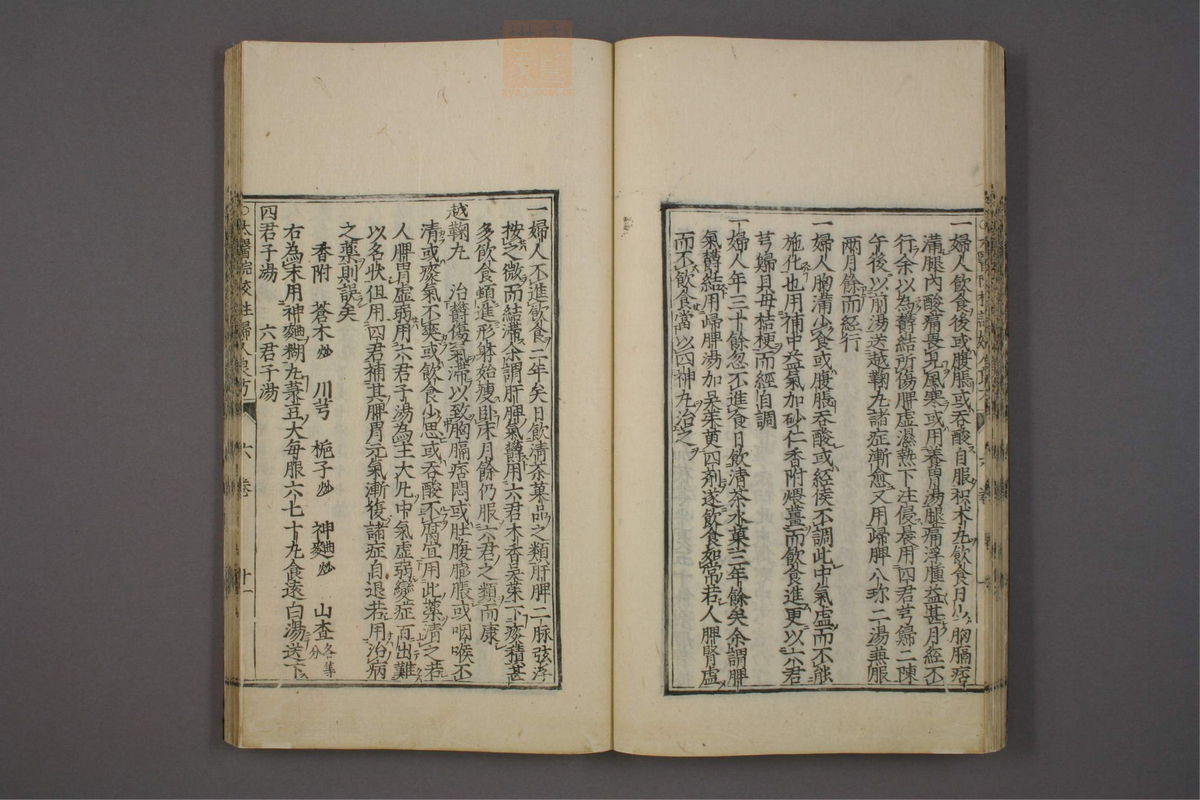 一婦人飲食後或腹脹或吞酸自服枳朮丸飲食日少胸膈痞
滿腿內酸痛畏見風寒或用養胃湯腿痛浮腫益甚月經不
行余以為鬱結所傷脾虛濕熱下注侵晨用四君芎歸二陳
午後以前湯送越鞠丸諸症漸愈又用歸脾八珍二湯兼服
兩月餘而經行
一婦人胸滿少食或腹脹吞酸或經候不調此中氣虛而不能
施化也用補中益氣加砂仁香附煨薑而飲食進更以六君
芎歸貝母桔梗而經自調
一婦人年三十餘忽不進食日飲清茶水菓三年餘矣余謂脾
氣鬱結用歸脾湯加吳茱萸四剤遂飲食如常若人脾腎虛
而不飲食當以四神丸治之
一婦人不進飲食二年矣日飲清茶菓品之類肝脾二脉弦浮
按之微而結滯余謂肝脾氣鬱用六君木香吳茱下痰積甚
多飲食頓進形躰始瘦卧床月餘仍服六君之類而康
越鞠丸　治鬱傷氣滯以致胸膈痞悶或肚腹膨脹或咽喉不
清或痰氣不爽或飲食少思或吞酸不腐宜用此藥清之若
人脾胃虛弱用六君子湯為主大凡中氣虛弱變症百出難
以名狀但用四君補其脾胃元氣漸復諸症自退若用治病
之藥則誤矣
香附　蒼朮炒　川芎　梔子炒　神麯炒　山查各等分
右為末用神麯糊丸菉豆大每服六七十丸食遠白湯送下
四君子湯　六君子湯
○太醫院校註婦人良方　六卷　十一